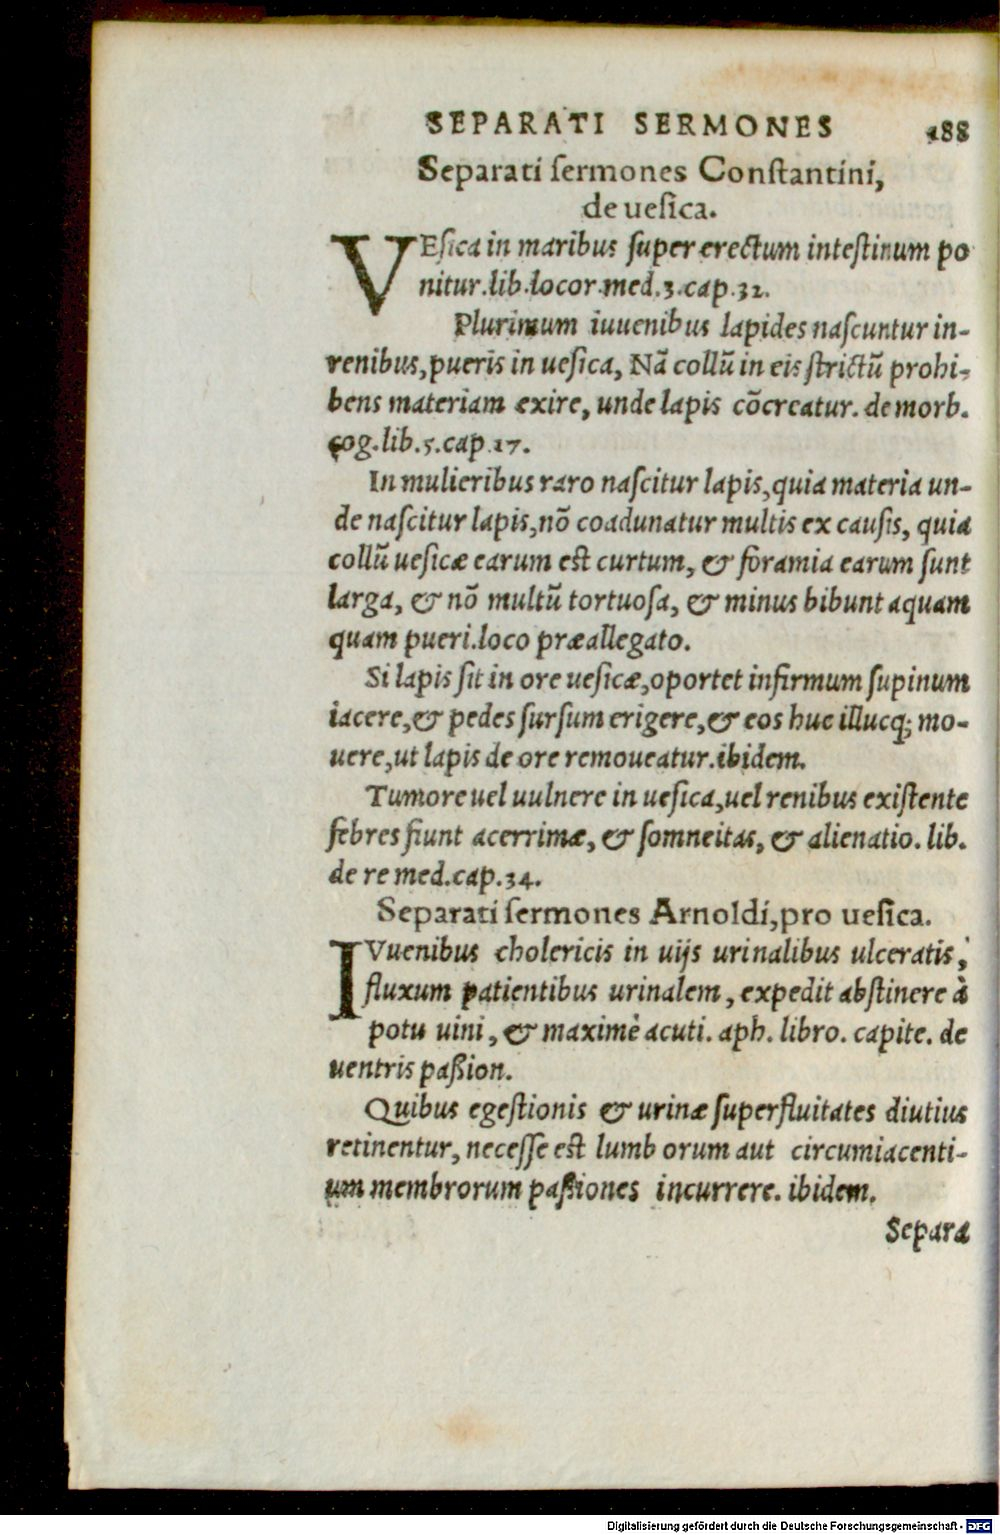 SEPARATI SERMONES 188
Separati ſermones Conſtantini,
de ueſica.
VEſica in maribus ſuper erectum inteſtinum po
nitur.lib.locor.med.3.cap.32.
Plurimum iuuenibus lapides naſcuntur in-
renibus,pueris in ueſica, Nã collũ in eis ſtrictũ prohi-
bens materiam exire, unde lapis cõcreatur. de morb.
cog.lib.5.cap.17.
In mulieribus raro naſcitur lapis,quia materia un-
de naſcitur lapis,nõ coadunatur multis ex cauſis, quia
collũ ueſicæ earum eſt curtum, & foramia earum ſunt
larga, & nõ multũ tortuoſa, & minus bibunt aquam
quam pueri.loco præallegato.
Si lapis ſit in ore ueſicæ,oportet infirmum ſupinum
iacere,& pedes ſurſum erigere,& eos huc illucq; mo-
uere,ut lapis de ore remoueatur.ibidem.
Tumore uel uulnere in ueſica,uel renibus exiſtente
febres fiunt acerrimæ, & ſomneitas, & alienatio. lib.
de re med.cap.34.
Separati ſermones Arnoldi,pro ueſica.
IVuenibus cholericis in uijs urinalibus ulceratis,
fluxum patientibus urinalem, expedit abſtinere à
potu uini, & maximè acuti. aph. libro. capite. de
uentris paßion.
Quibus egeſtionis & urinæ ſuperfluitates diutius
retinentur, neceſſe eſt lumb orum aut circumiacenti-
um membrorum paßiones incurrere. ibidem.
Separa
Digitalisierung gefördert durch die Deutsche Forschungsgemeinschaft - DFG